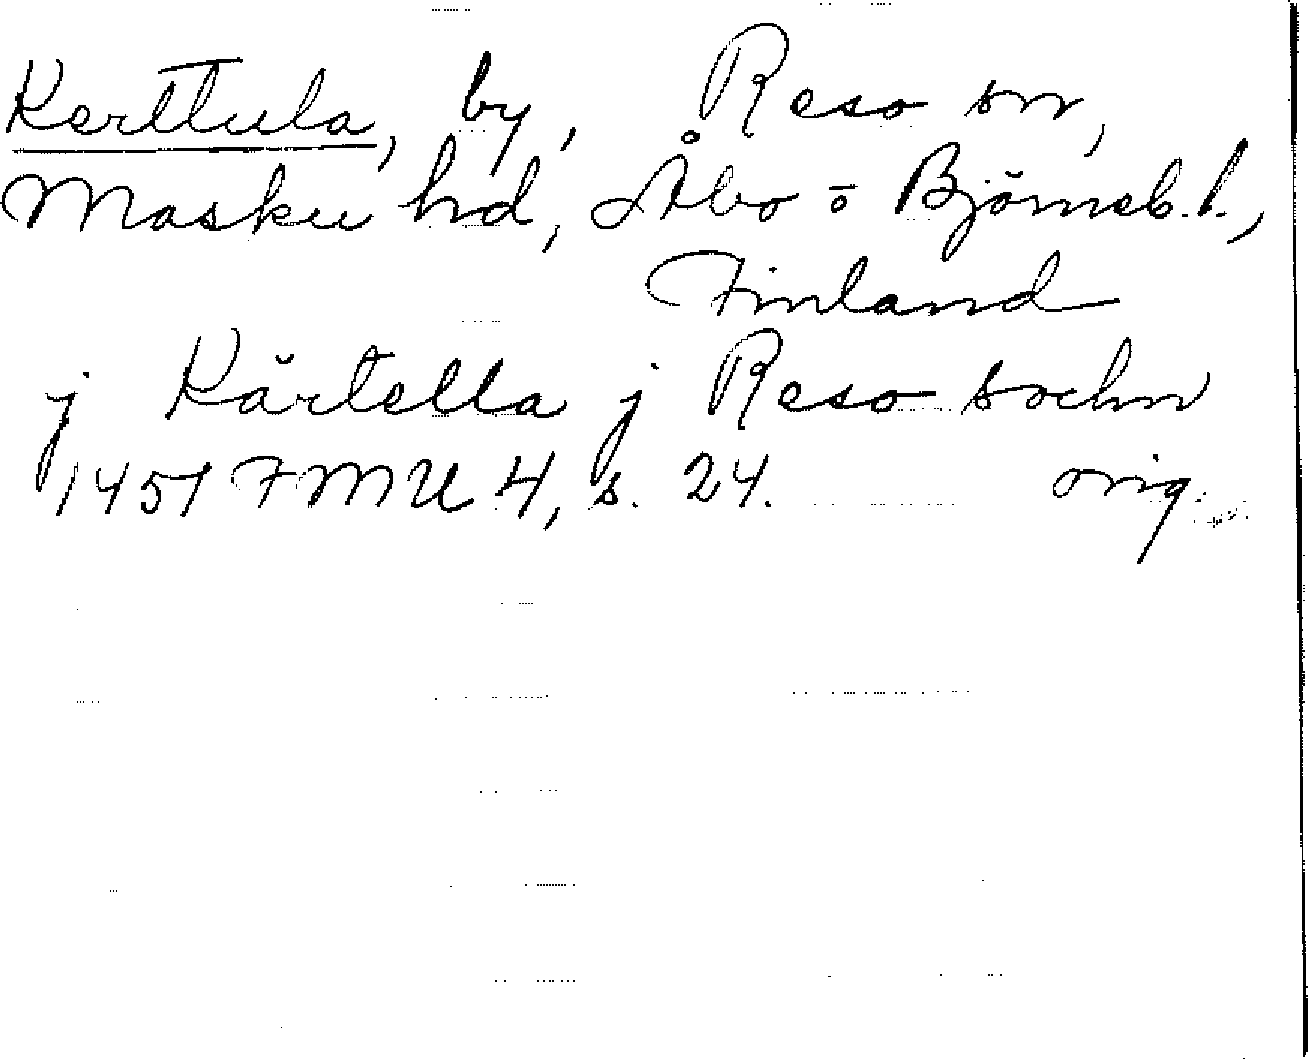 Kerttula, by, Reso sn,
Masku hd, Åbo o Björneb. l.,
Finland
j Kärtella j Reso sochn
1451 FMU 4, s. 24. orig.